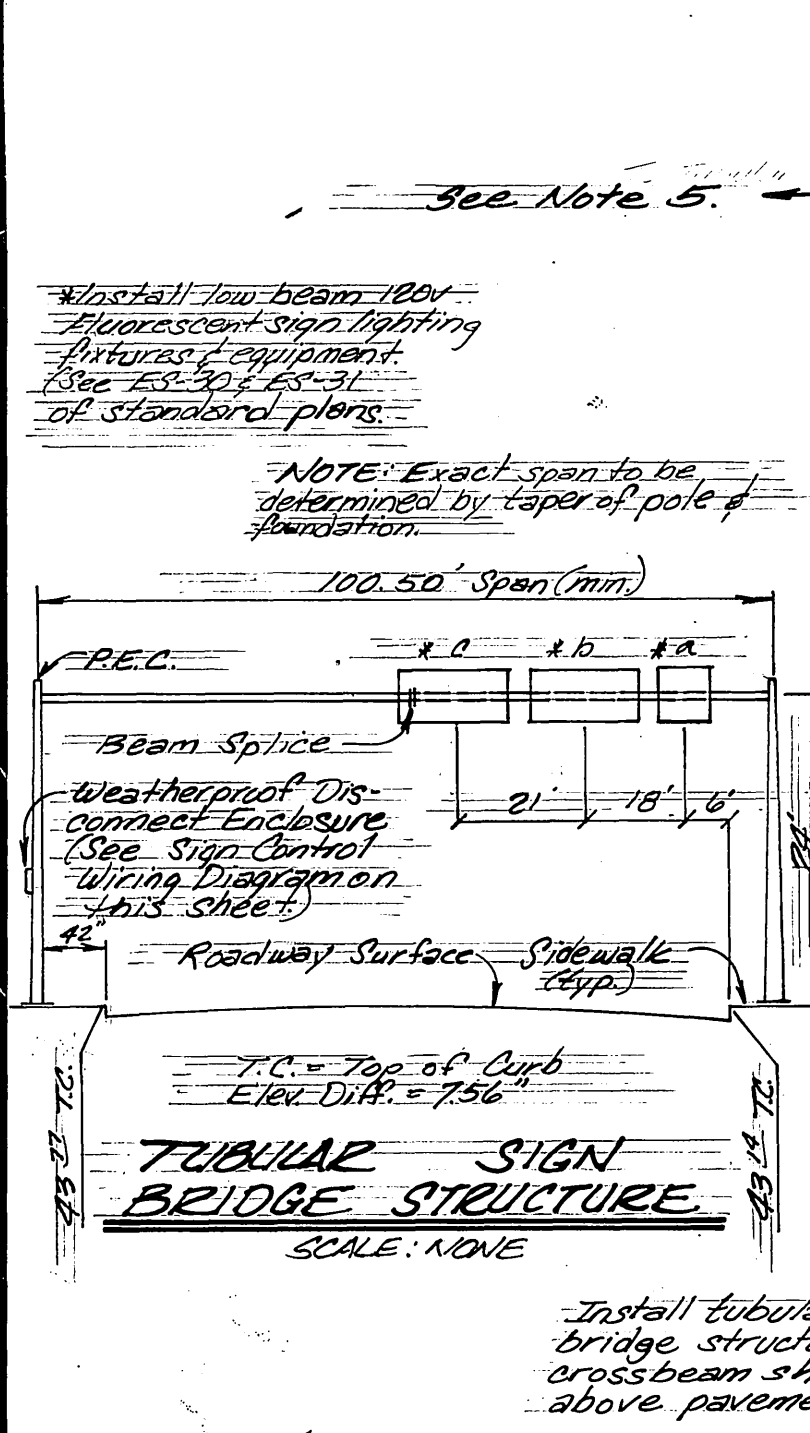 See Note 5.
*Install low beam 120v
Fluorescent sign lighting
fixtures & equipment.
(See ES-30 & ES-31
of standard plans.
NOTE: Exact span to be
determined by taper of pole &
foundation.
100.50' Span (min.)
P.E.C.
* c
* b
* a
Beam Splice
Weatherproof Dis-
connect Enclosure
(See Sign Control
Wiring Diagram on
this sheet)
21'
18'
6'
24'
42"
Roadway Surface
Sidewalk
(typ.)
T.C. = Top of Curb
Elev. Diff. = 7.56"
43 77 T.C.
43 14 T.C.
TUBULAR SIGN
BRIDGE STRUCTURE
SCALE: NONE
Install tubula
bridge struct
crossbeam sh
above paveme